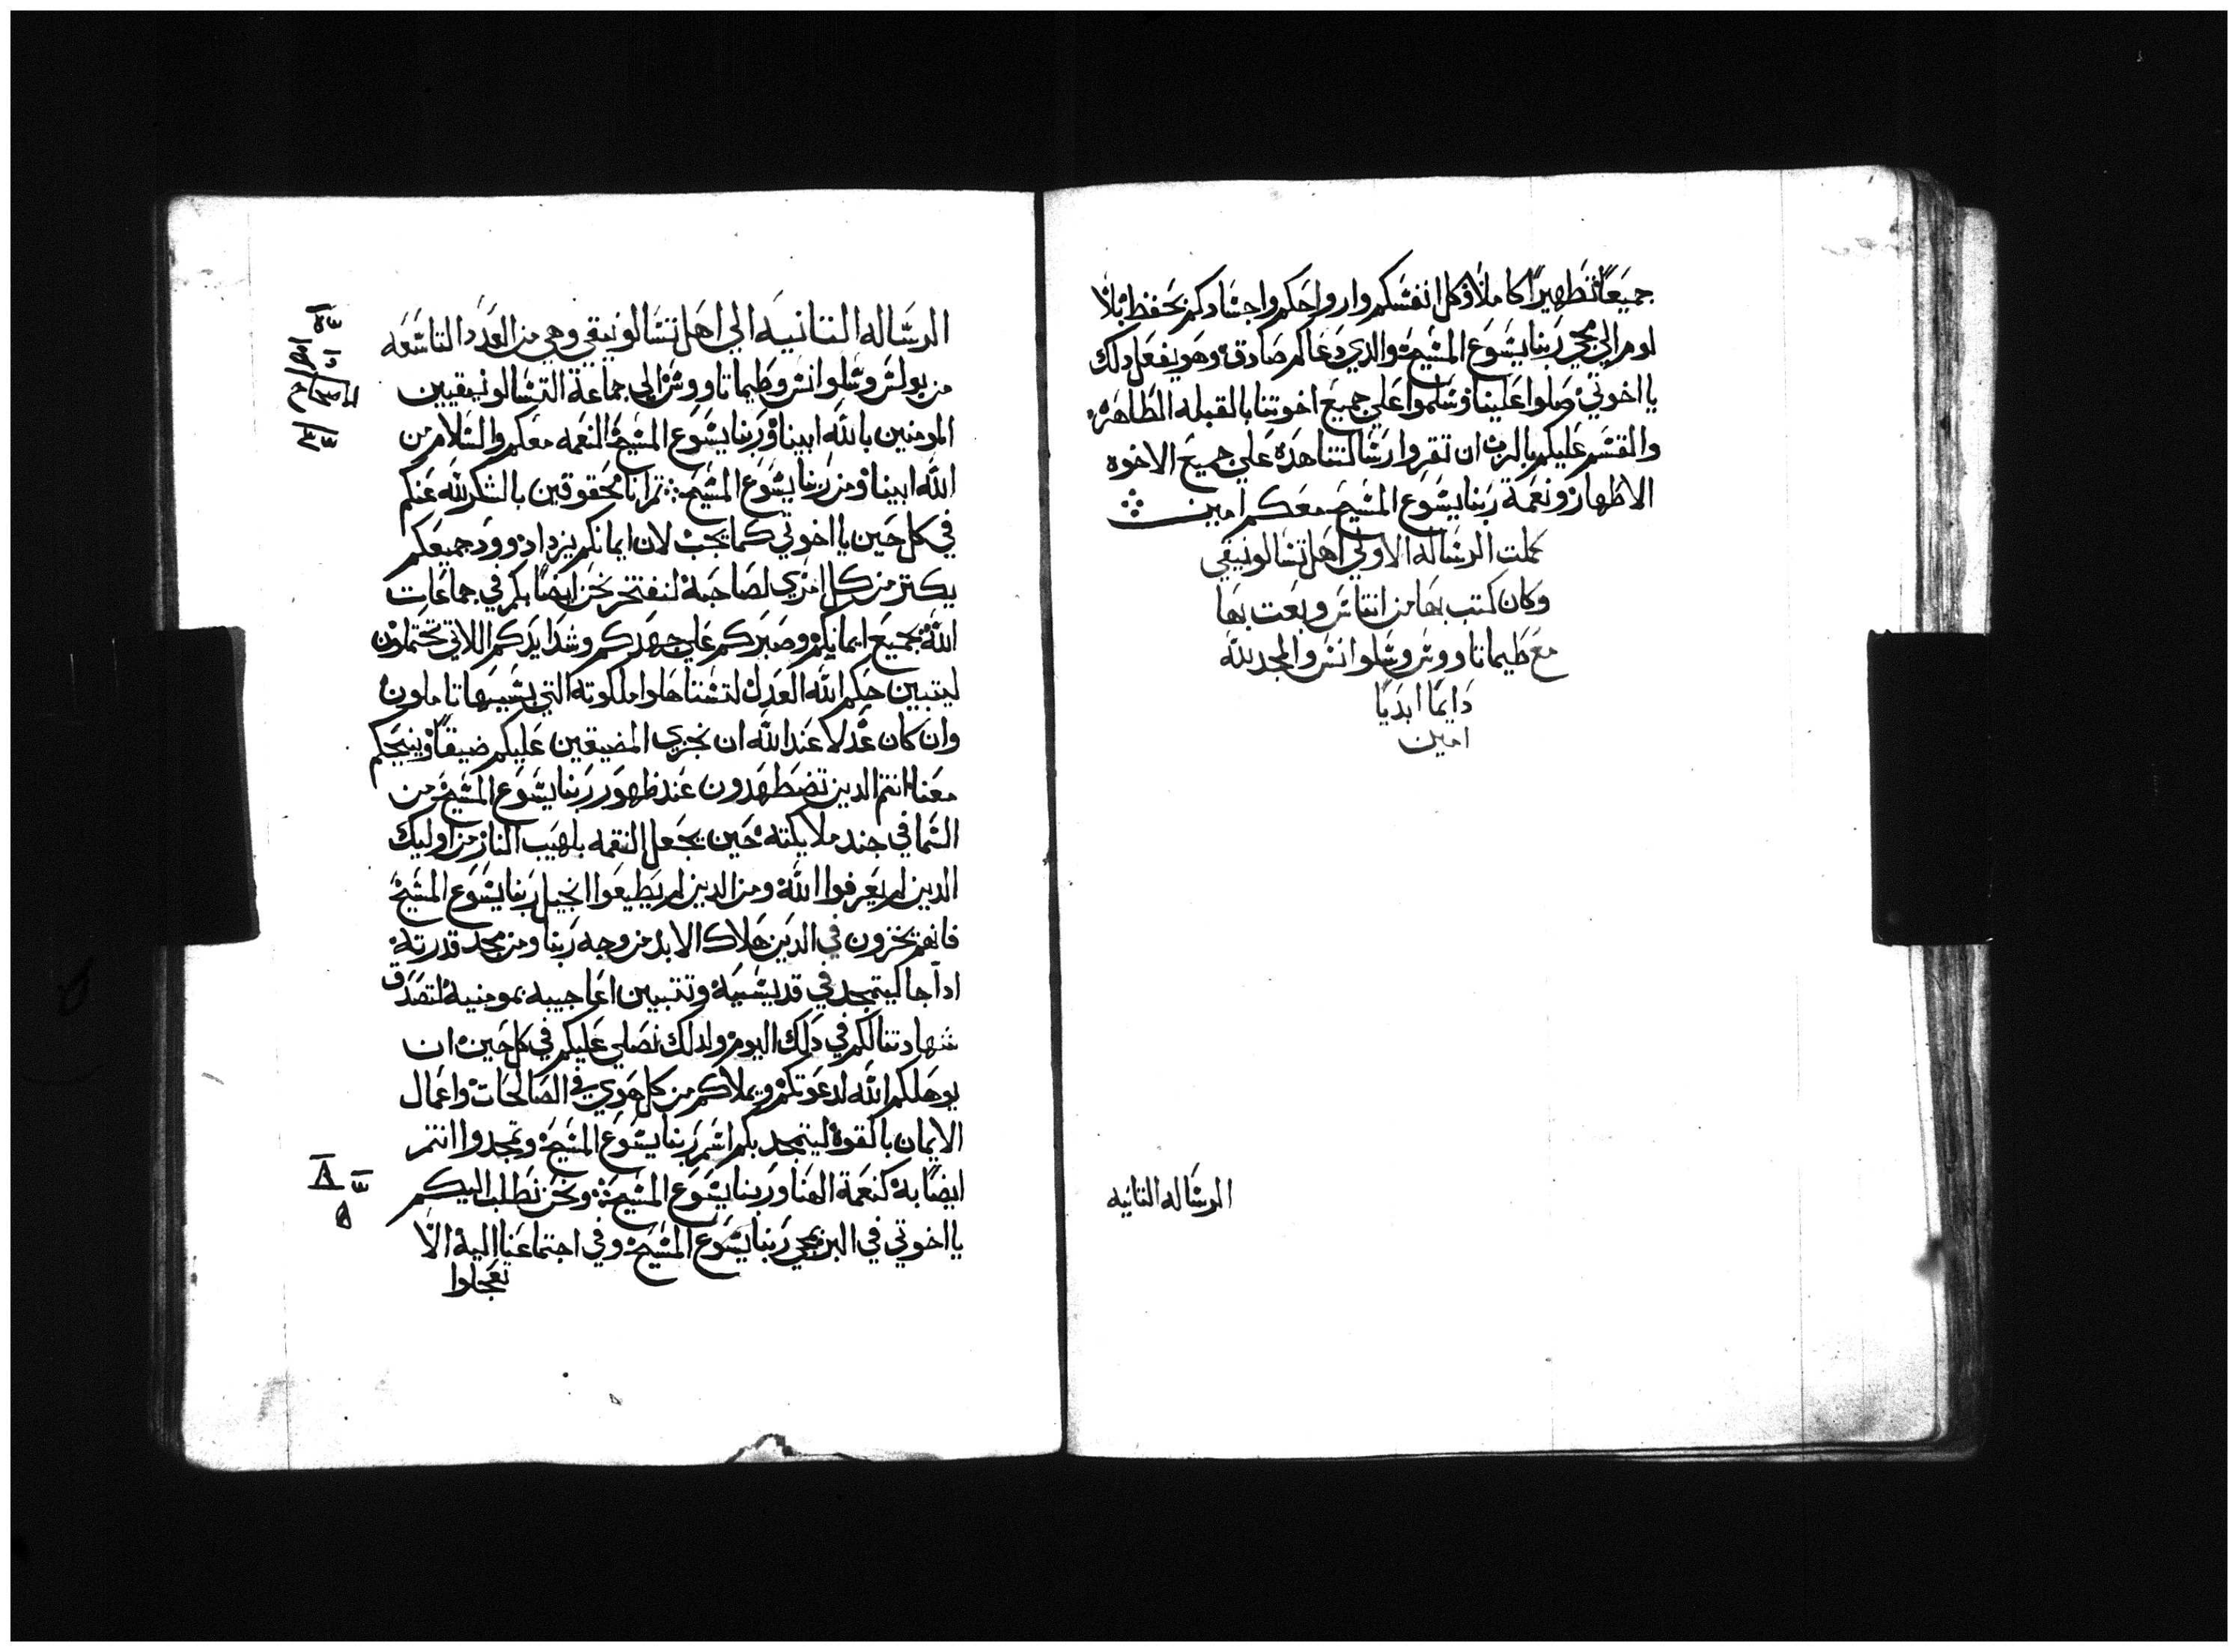 جميعًا تطهيرًا كاملًا وكل انفسكم وارواحكم واجسادكم يحفظ بلا
لوم الي مجي ربنا يشوع المسيح والدي دعاكم صادق وهو يفعل دلك
يا اخوتي صلوا علينا وسلموا علي جميع اخوتنا بالقبله الطاهره
والقسم عليكم بالرب ان تقروا رسالتنا هده علي جميع الاخوه
الاطهار ونعمة ربنا يشوع المسيح معكم امين
كملت الرساله الاولي اهل تسالونيقي
وكان كتب بها من اتناس وبعت بها
مع طيماتاووس وسلوانس والمجد لله
دايمًا ابديًا
امين
الرساله التانيه
الرساله التانيه الي اهل تسالونيقي وهي من العدد التاسعه
من بولس وسلوانس وطيماتاووس الي جماعة التسالونيقيين
المومنين بالله ابينا وربنا يشوع المسيح النعمه معكم والسلام من
الله ابينا ومن ربنا يشوع المسيح ثم انا محقوقين بالشكر لله عنكم
في كل حين يا اخوتي كما يجب لان ايمانكم يزداد وود جميعكم
يكتر من كل امري لصاحبه لنفتخر نحن ايضًا بكم في جماعات
الله بجميع ايمانكم وصبركم علي جهدكم وشدايدكم اللاتي تحتملون
ليتبين حكم الله العدل لتستاهلوا ملكوته التي بسببها تاملون
وان كان عدلا عند الله ان يجزي المضيقين عليكم ضيقًا وينيحكم
معنا انتم الدين تضطهدون عند ظهور ربنا يشوع المسيح من
السما في جند ملايكته حين يجعل النقمه بلهيب النار من اوليك
الدين لم يعرفوا الله ومن الدين لم يطيعوا انجيل ربنا يشوع المسيح
فانهم يخزون في الدين هلاك الابد من وجه ربنا ومن مجد قدرته
ادا جا ليتمجد في قديسيه وتتبين اعاجيبه بمومنيه لتصدق
شهادتنا لكم في دلك اليوم ولدلك نصلي عليكم في كل حين ان
يوهلكم الله لدعوتكم ويملاكم من كل هوي في الصالحات واعمال
الايمان بالقوه ليتمجد بكم اسم ربنا يشوع المسيح وتمجدوا انتم
ايضًا به كنعمة الهنا وربنا يشوع المسيح ونحن نطلب اليكم
يا اخوتي في البر بمجي ربنا يشوع المسيح وفي اجتماعنا اليه الا
تعجلوا